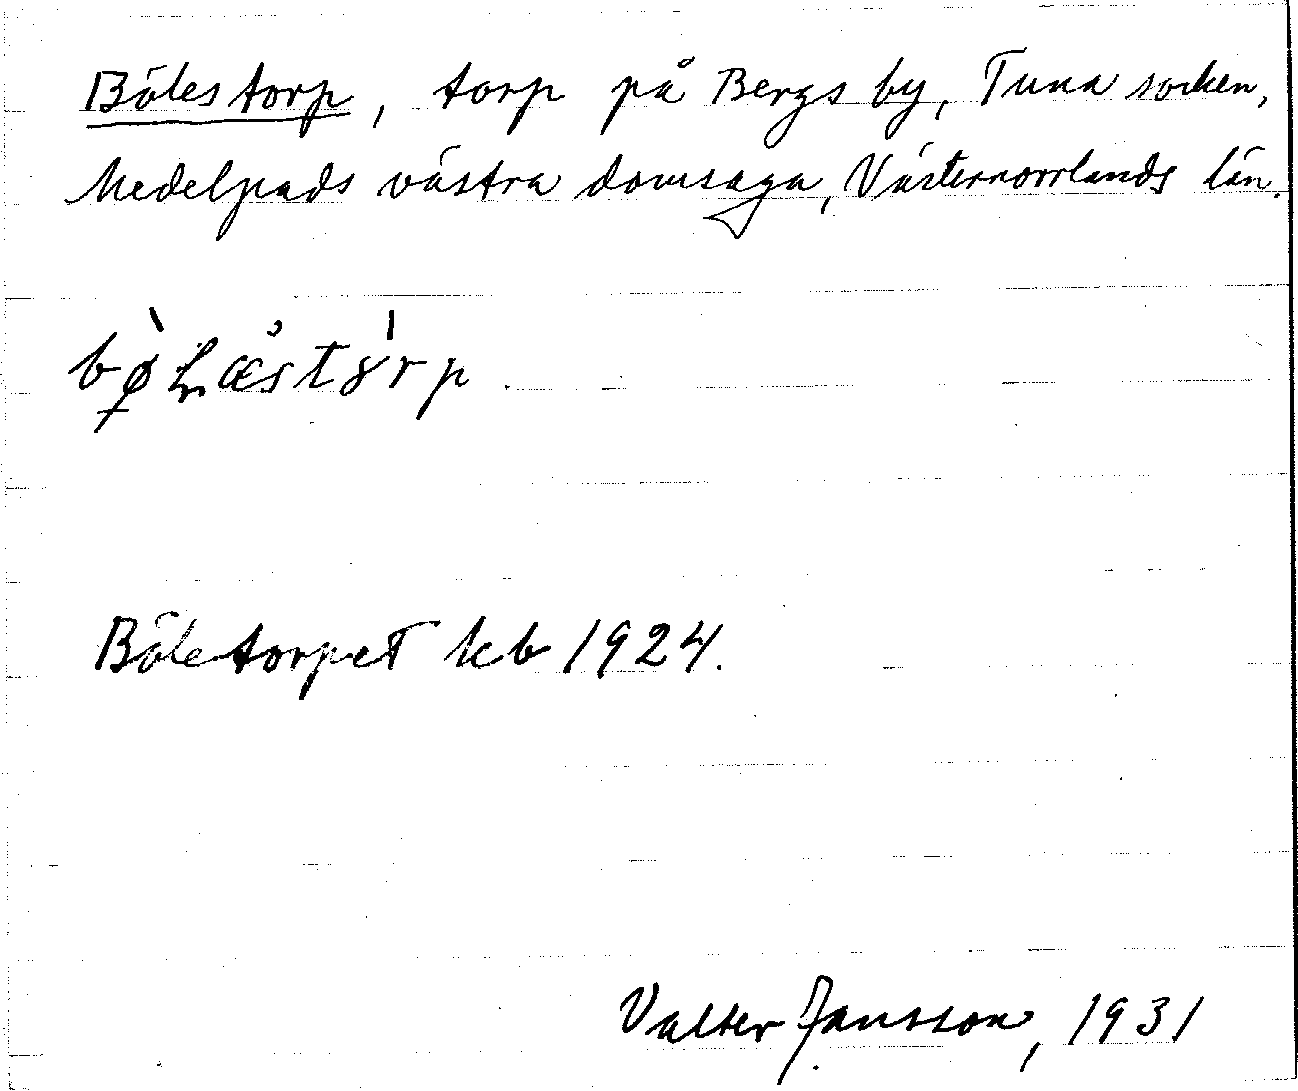 Bölestorp, torp på Bergs by, Tuna socken,
Medelpads västra domsaga, Västernorrlands län.
Böletorpet kb 1924.
Valter Jansson, 1931